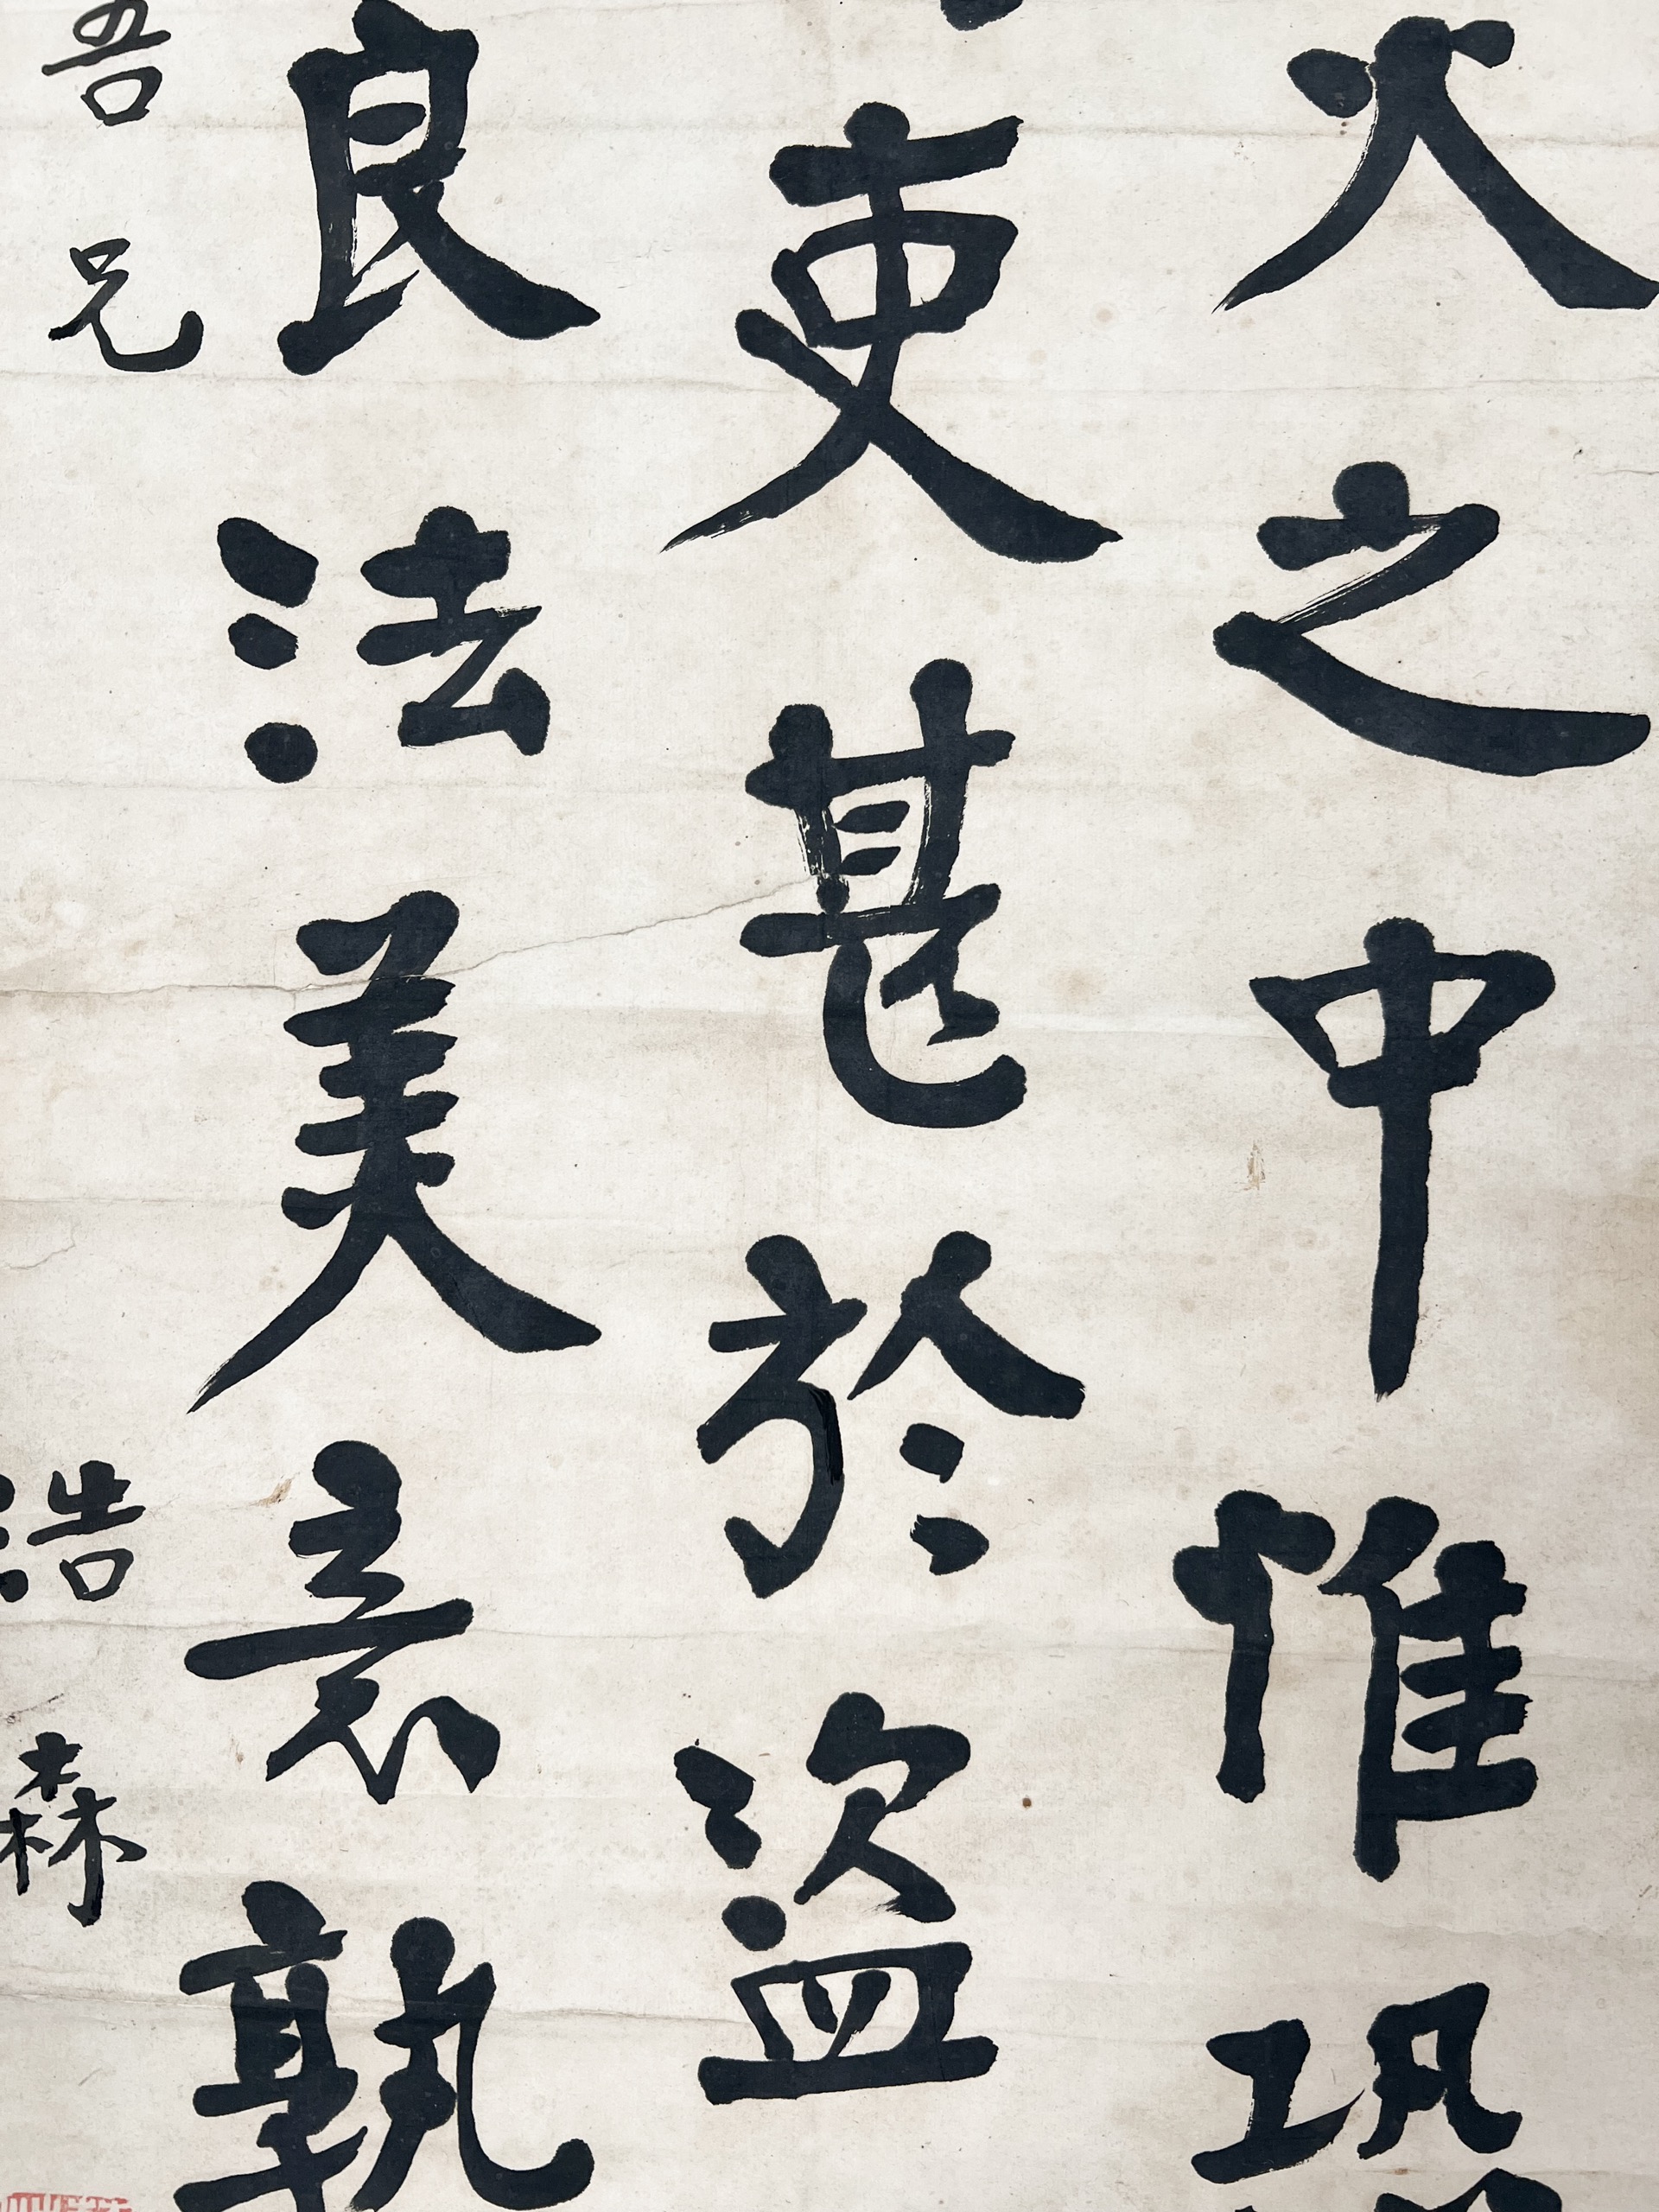 火之中惟恐
吏甚於盜
良法美意孰
吾兄 浩森